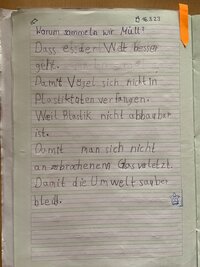 16.3.23
Worum sammeln wir Müll?
Dass es der Welt besser
geht.
Damit Vögel sich nicht in
Plastiktüten verfangen.
Weil Plastik nicht abbaubar
ist.
Damit man sich nicht
an zobrachenem Glas verletzt.
Damit die Umwelt sauber
bleibt.